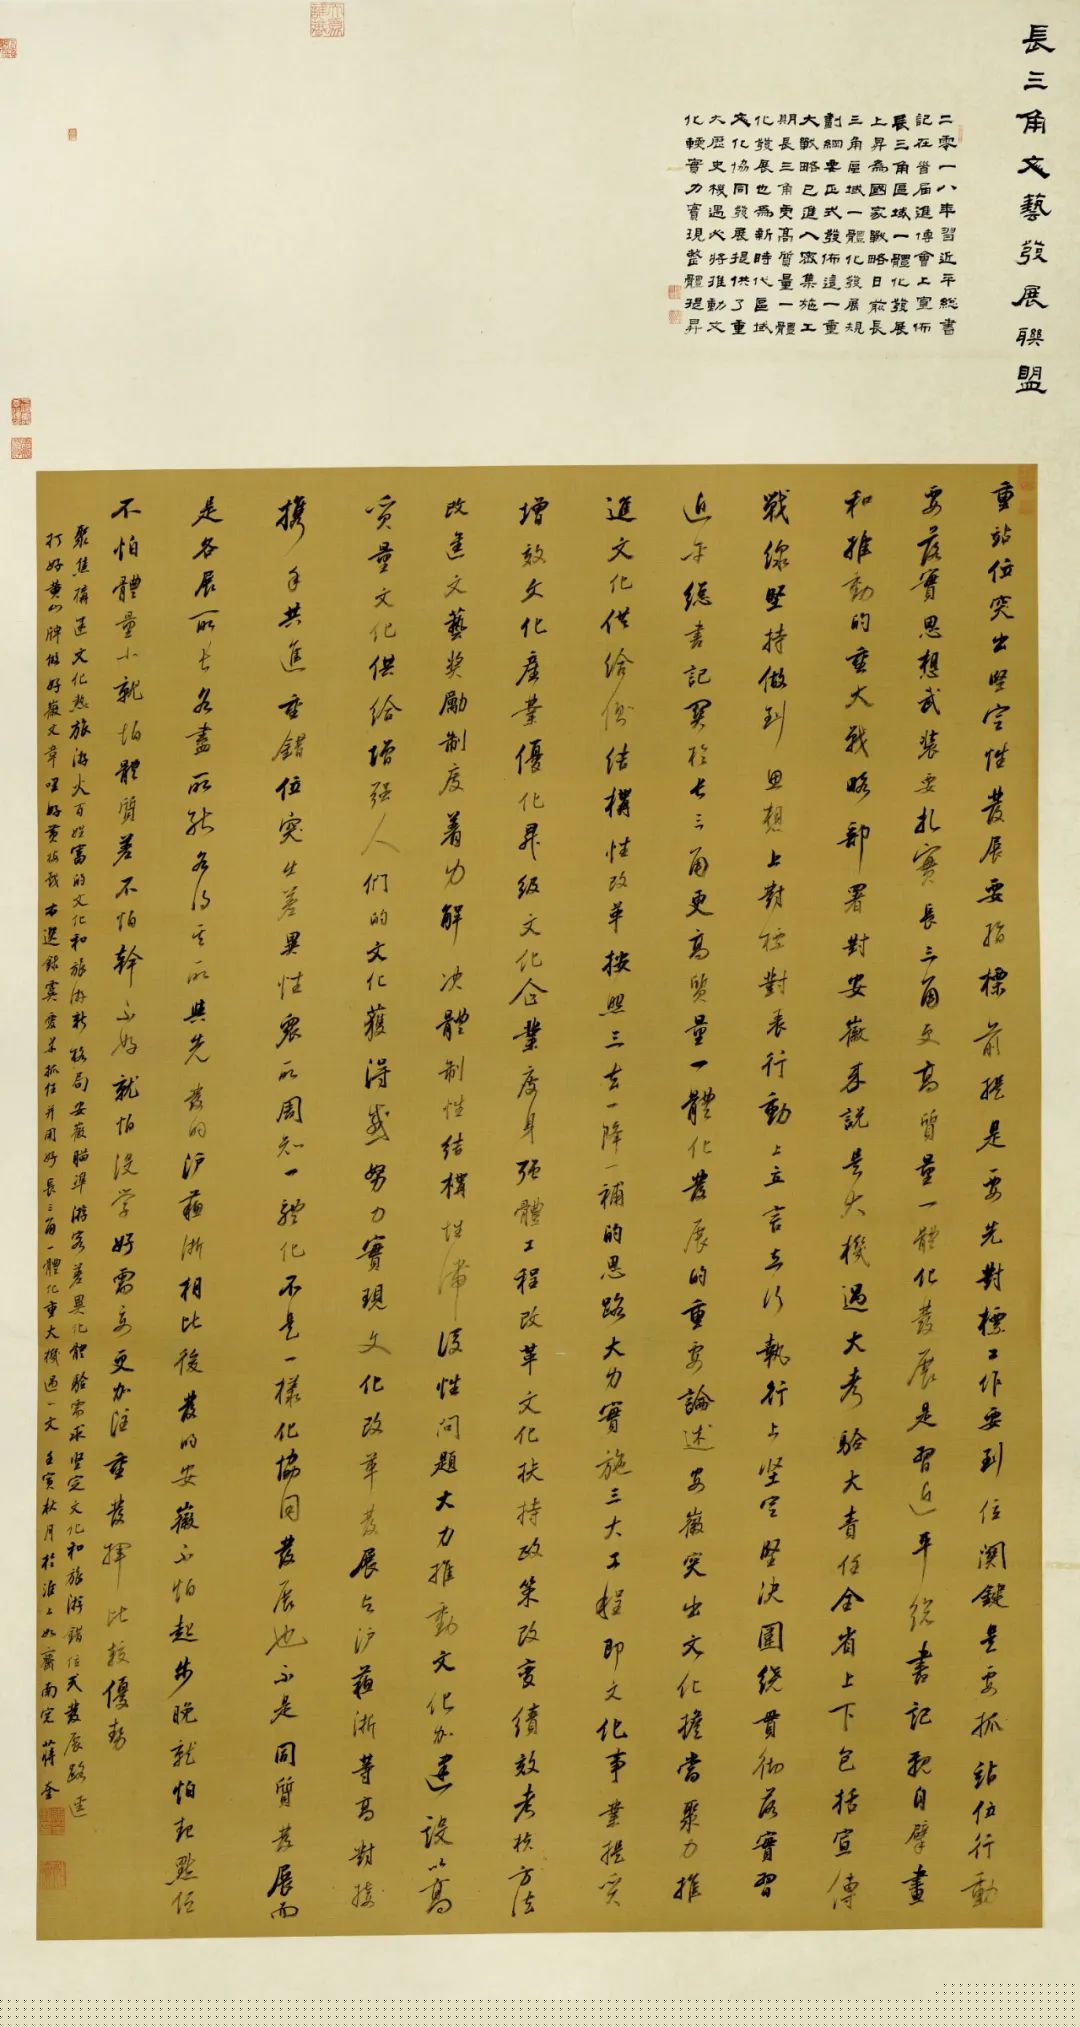 長三角文藝發展聯盟
二零一八年習近平總書
記在首屆進博會上宣佈
長三角區域一體化發展
上昇為國家戰略日前長
三角區域一體化發展規
劃綱要正式發佈這一重
大戰略已進入密集施工
期長三角更高質量一體
化發展也為新時代區域
文化協同發展提供了重
大歷史機遇必將推動文
化輭實力實現整體提昇
重站位突出堅定性發展要指標前提是要先對標工作要到位關鍵是要抓站位行動
要落實思想武裝要扎實長三角更高質量一體化發展是習近平總書記親自擘畫
和推動的重大戰略部署對安徽來說是大機遇大考驗大責任全省上下包括宣傳
戰線堅持做到思想上對標對表行動上立言立行執行上堅定堅決圍繞貫徹落實習
近平總書記關於長三角更高質量一體化發展的重要論述安徽突出文化擔當聚力推
進文化供給側結構性改革按照三去一降一補的思路大力實施三大工程即文化事業提質
增效文化產業優化昇級文化企業瘦身強體工程改革文化扶持政策改變績效考核方法
改進文藝獎勵制度著力解決體制性結構性滯後性問題大力推動文化加建設以高
質量文化供給增強人們的文化獲得感努力實現文化改革發展與滬蘇浙等高對接
攜手共進重錯位突出差異性眾所周知一體化不是一樣化協同發展也不是同質發展而
是各展所長各盡所能各得其所與先發的滬蘇浙相比後發的安徽不怕起步晚就怕起點低
不怕體量小就怕體質差不怕幹不好就怕沒學好需要更加注重發揮比較優勢
聚焦構建文化熱旅游火百姓富的文化和旅游新格局安徽瞄準游客差異化體驗需求堅定文化和旅游錯位式發展路徑
打好黃山牌做好徽文章唱好黃梅戲右選錄虞愛華抓住并用好長三角一體化重大機遇一文壬寅秋月於淮上如齋南窗蔣奎